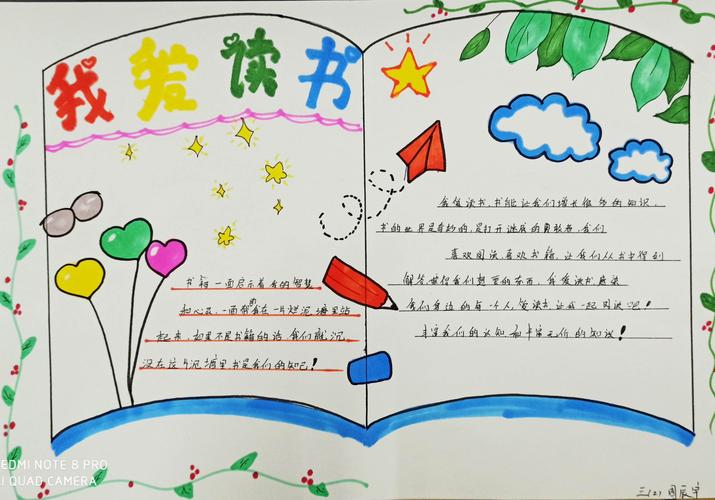 我爱读书
书籍一面启示着我的智慧
和心灵,一面帮我在一片烂泥塘里站
起来,如果不是书籍的话我们就沉
没在这片泥塘里书是我们的知己!
我爱读书,书能让我们增长很多的知识,
书的世界是奇妙的,是打开迷成的勇敢者,我们
喜欢阅读,喜欢书籍,让我们从书中得到
解答世得我们想要的东西,我爱读书
我们身边的每一个人,爱读书让我一起阅读吧!
丰富我们的认知和丰富无价的知识!
三(2)周辰宇
REDMI NOTE 8 PRO
AI QUAD CAMERA